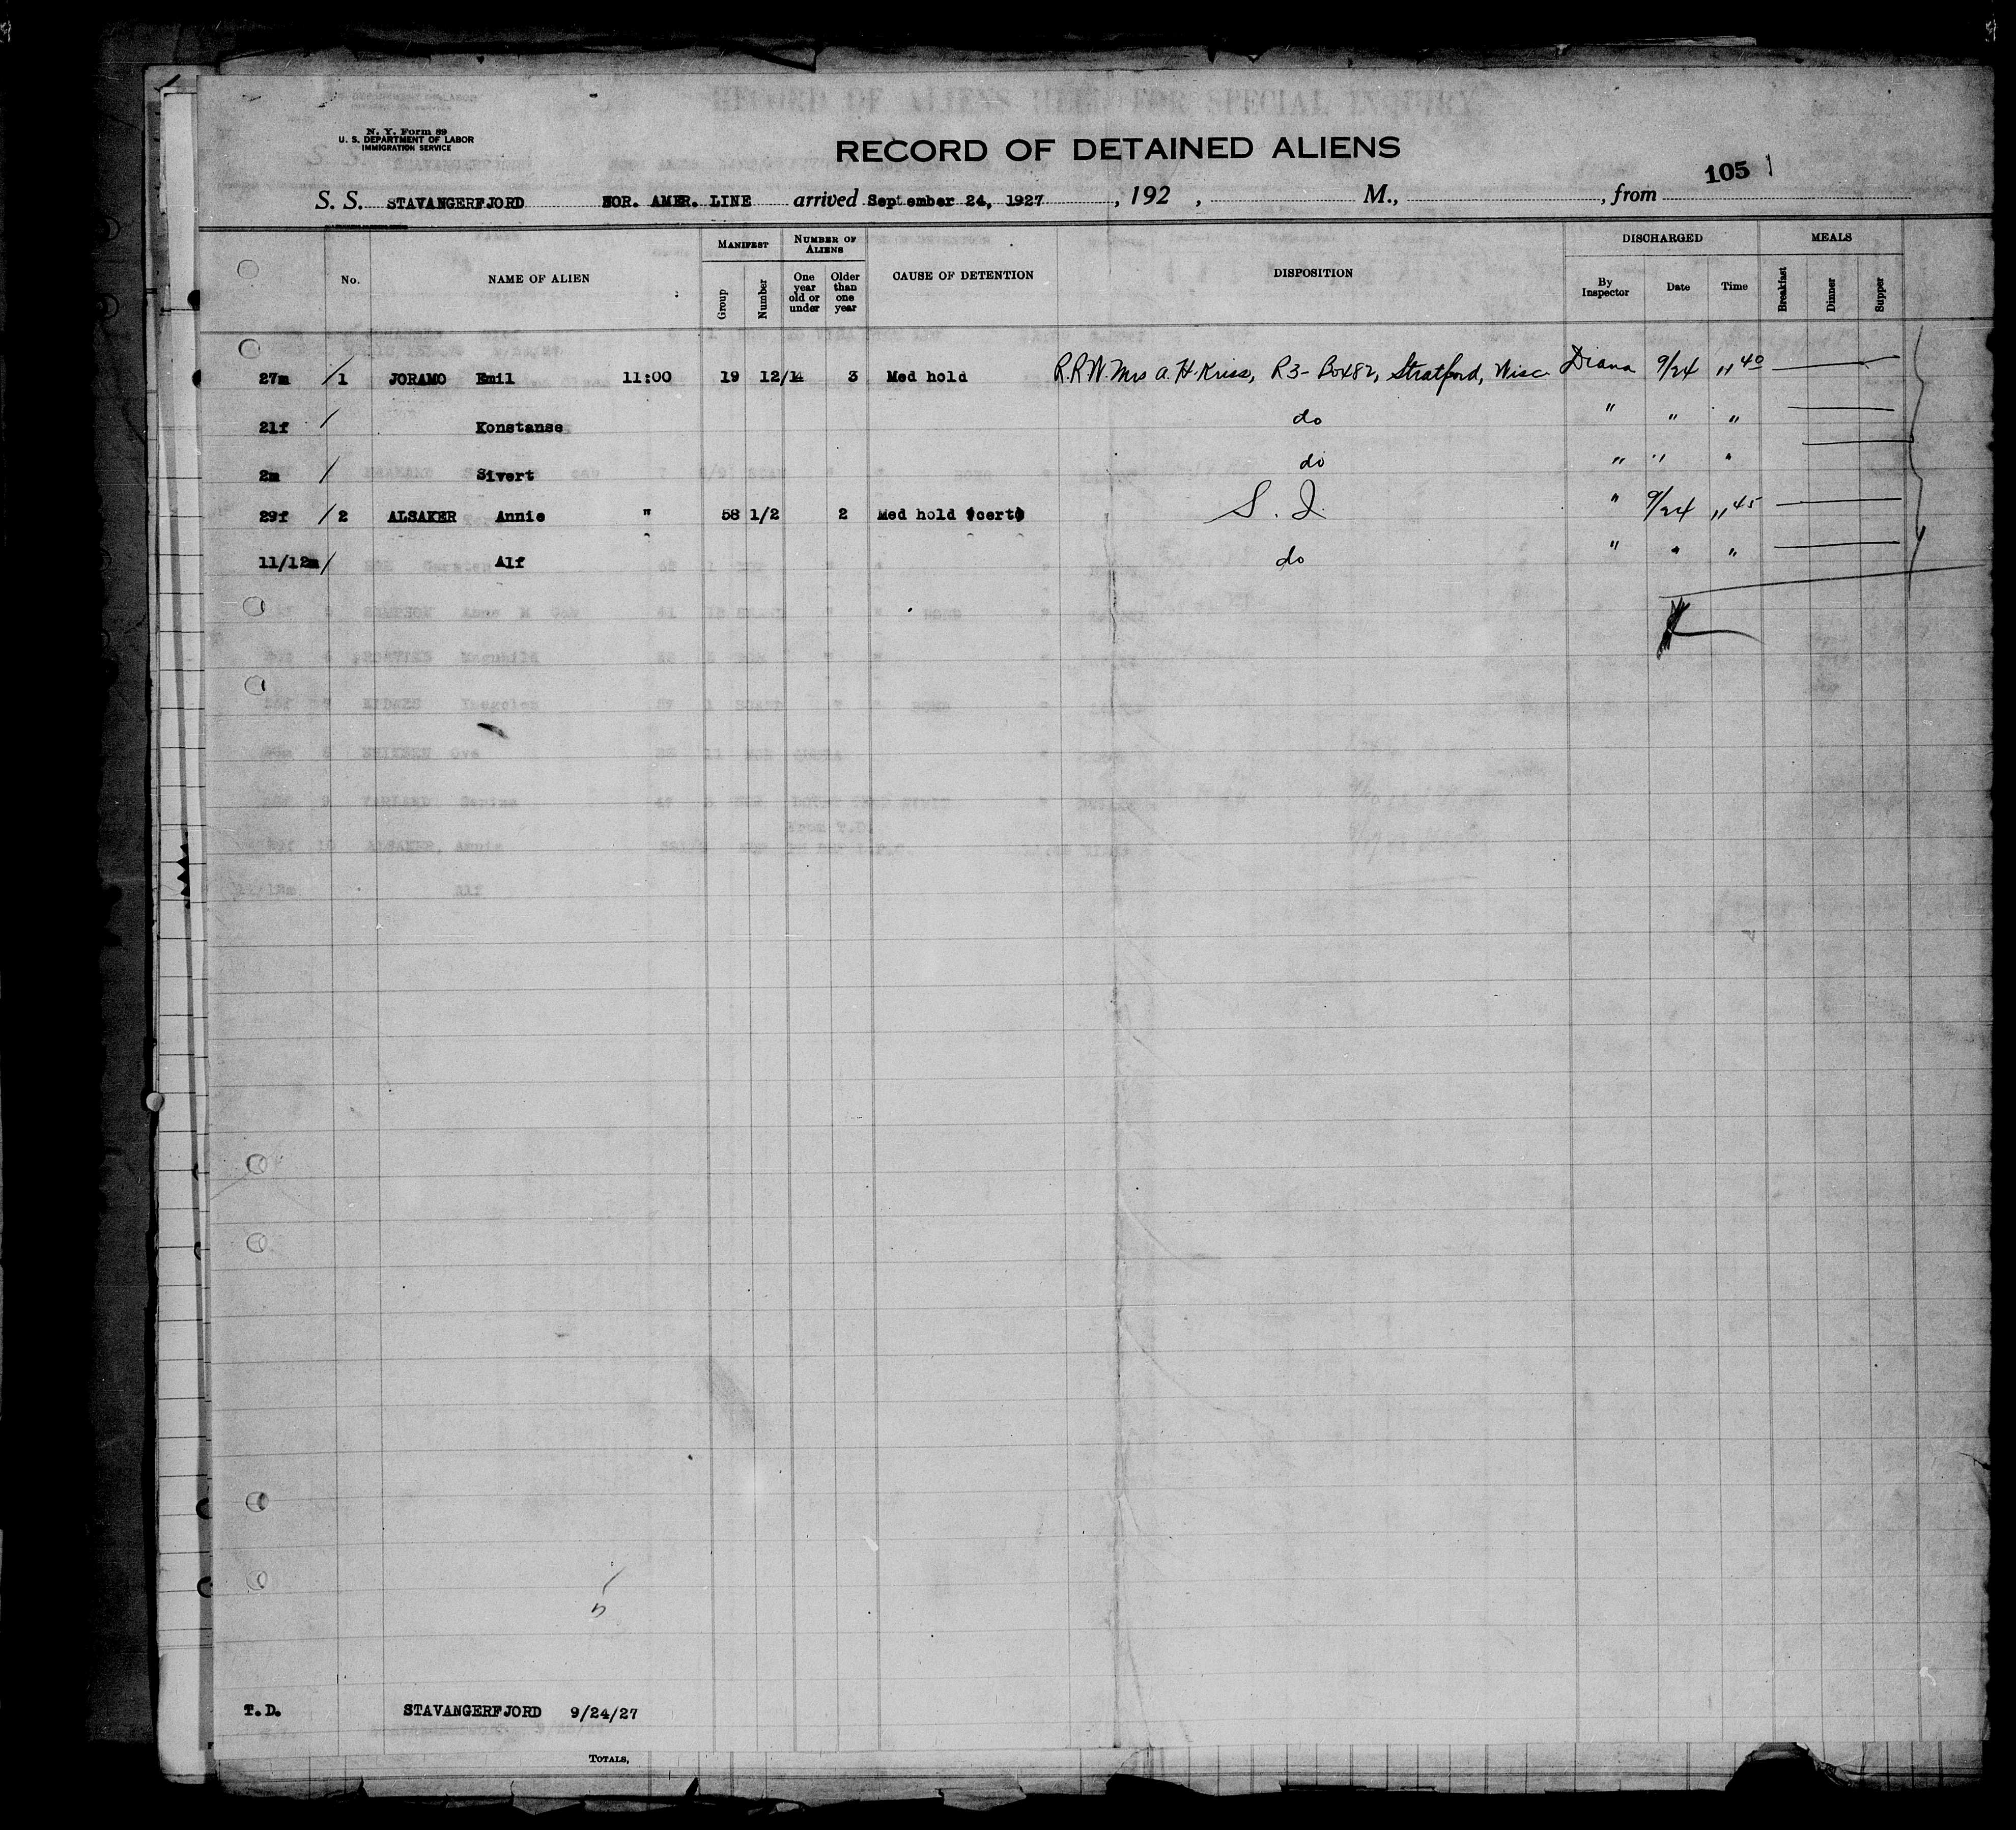 N. Y. Form 89
U. S. DEPARTMENT OF LABOR
IMMIGRATION SERVICE
RECORD OF DETAINED ALIENS
105
S. S. STAVANGERFJORD NOR. AMER. LINE arrived September 24, 1927, 192 , M., , from
No. NAME OF ALIEN MANIFEST Group Number NUMBER OF ALIENS One year old or under Older than one year CAUSE OF DETENTION DISPOSITION DISCHARGED By Inspector Date Time MEALS Breakfast Dinner Supper
27m / 1 JORAMO Emil 11:00 19 12/14 3 Med hold R.R.W. Mrs A. H. Kriss, R3- Box 82, Stratford, Wisc. Diana 9/24 11 40
21f / Konstanse do " " "
2m / Sivert do " " "
29f / 2 ALSAKER Annie " 58 1/2 2 Med hold (cert) S. I. " 9/24 11 45
11/12m / Alf do " " "
T.D. STAVANGERFJORD 9/24/27
TOTALS,